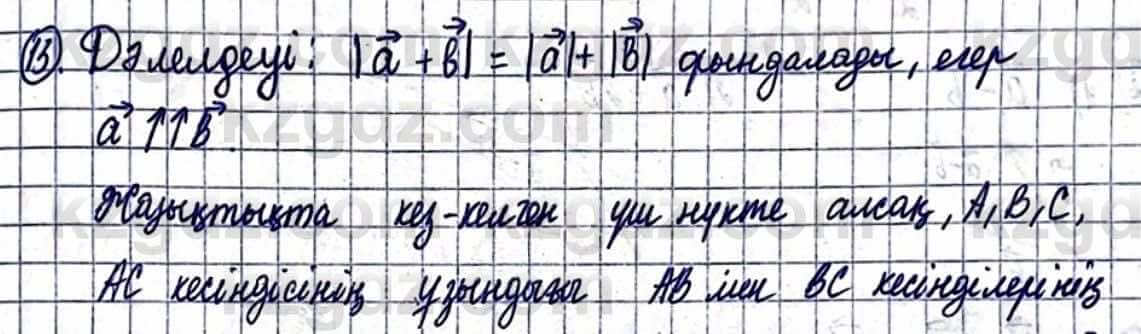 13). Дәлелдеуі: |a⃗ + b⃗| = |a⃗| + |b⃗| орындалады, егер
a⃗ ↑↑ b⃗
Жазықтықта кез-келген үш нүкте алсақ, A, B, C,
AC кесіндісінің ұзындығы AB мен BC кесінділерінің